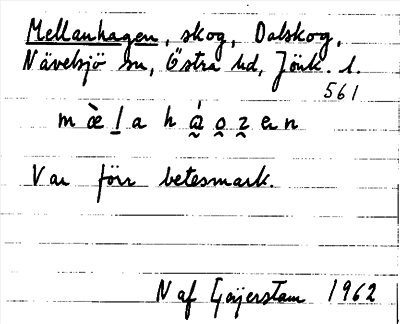 Mellanhagen, skog, Dalskog,
Nävelsjö sn, Östra hd, Jönk. l.
561
m æ̀ l a h á o z e n
Var förr betesmark.
N af Geijerstam 1962